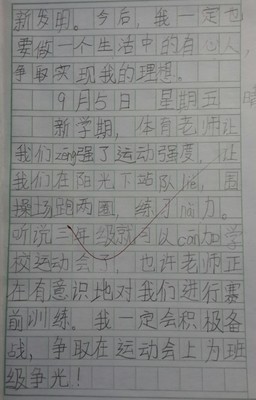 新发明。今后，我一定也
要做一个生活中的有心人，
争取实现我的理想。
9月5日 星期五 晴
新学期，体育老师让
我们zeng强了运动强度，让
我们在阳光下站队间，围
操场跑两圈，练了nai力。
听说三年级就可以can加学
校运动会了，也许老师正
在有意识地对我们进行赛
前训练。我一定会积极备
战，争取在运动会上为班
级争光！